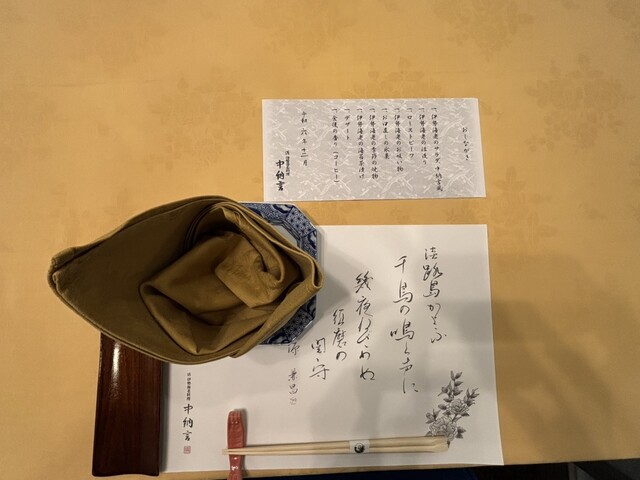 おしながき
一、伊勢海老のサラダ 中納言風
一、伊勢海老の活造り
一、ローストビーフ
一、伊勢海老のお吸い物
一、お口直しの氷菓
一、伊勢海老の季節の焼物
一、伊勢海老の海苔茶漬け
一、デザート
一、食後の香り (コーヒー)
令和 六年 十二月
活伊勢海老料理
中納言
淡路島かよふ
千鳥の鳴く声に
幾夜ねざめぬ
須磨の
関守
源 兼昌
活伊勢海老料理
中納言